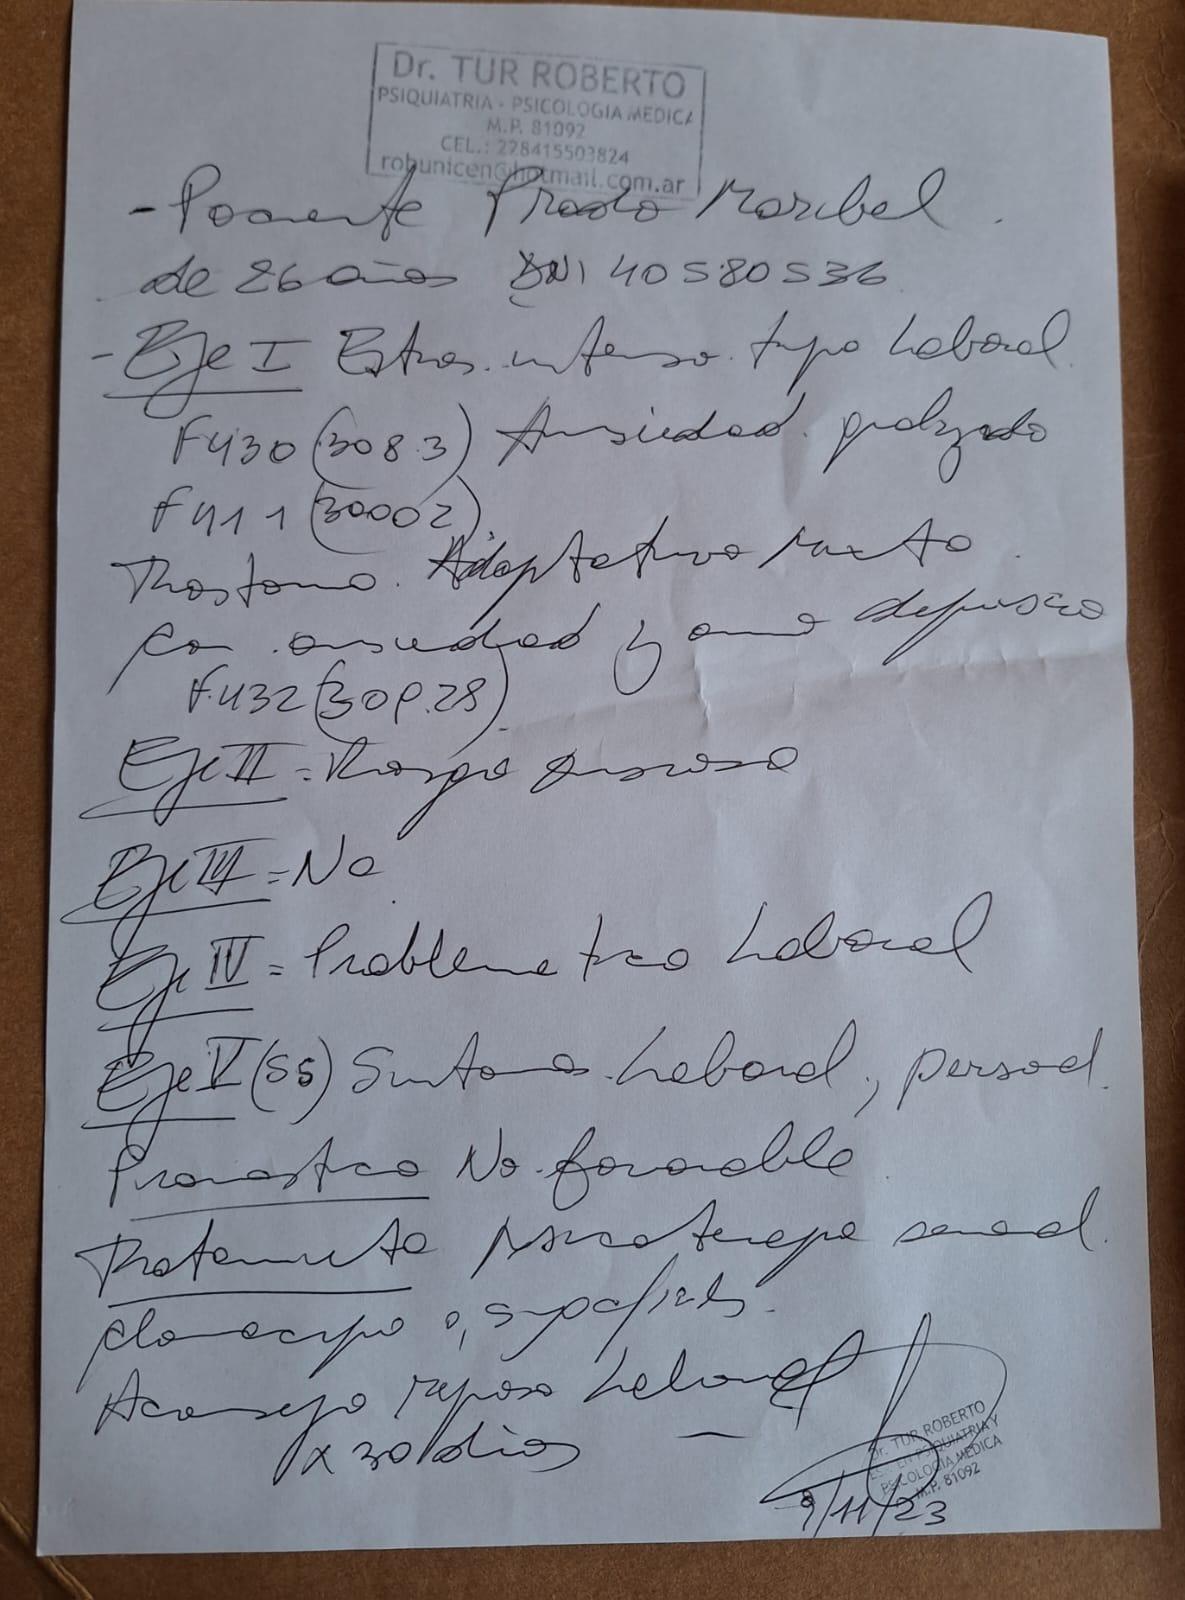 Dr. TUR ROBERTO
PSIQUIATRIA - PSICOLOGIA MEDICA
M.P. 81092
CEL.: 228415503824
robunicen@hotmail.com.ar
- Paciente Prado Maribel.
de 26 años DNI 40580536
- Eje I Estres intenso tipo Laboral.
F430 (308.3) Ansiedad
F411 (30002)
Trastorno Adaptativo Mixto
con ansiedad y animo depresivo
F432 (309.28)
Eje II = Rasgo ansioso
Eje III = No
Eje IV = Problematica Laboral
Eje V (55) Sintomas Laboral, personal.
Pronostico No favorable
Tratamiento psicoterapia semanal.
Aconsejo reposo Laboral
x 30 dias
Dr. TUR ROBERTO
ESP. EN PSIQUIATRIA Y
PSICOLOGIA MEDICA
M.P. 81092
9/11/23